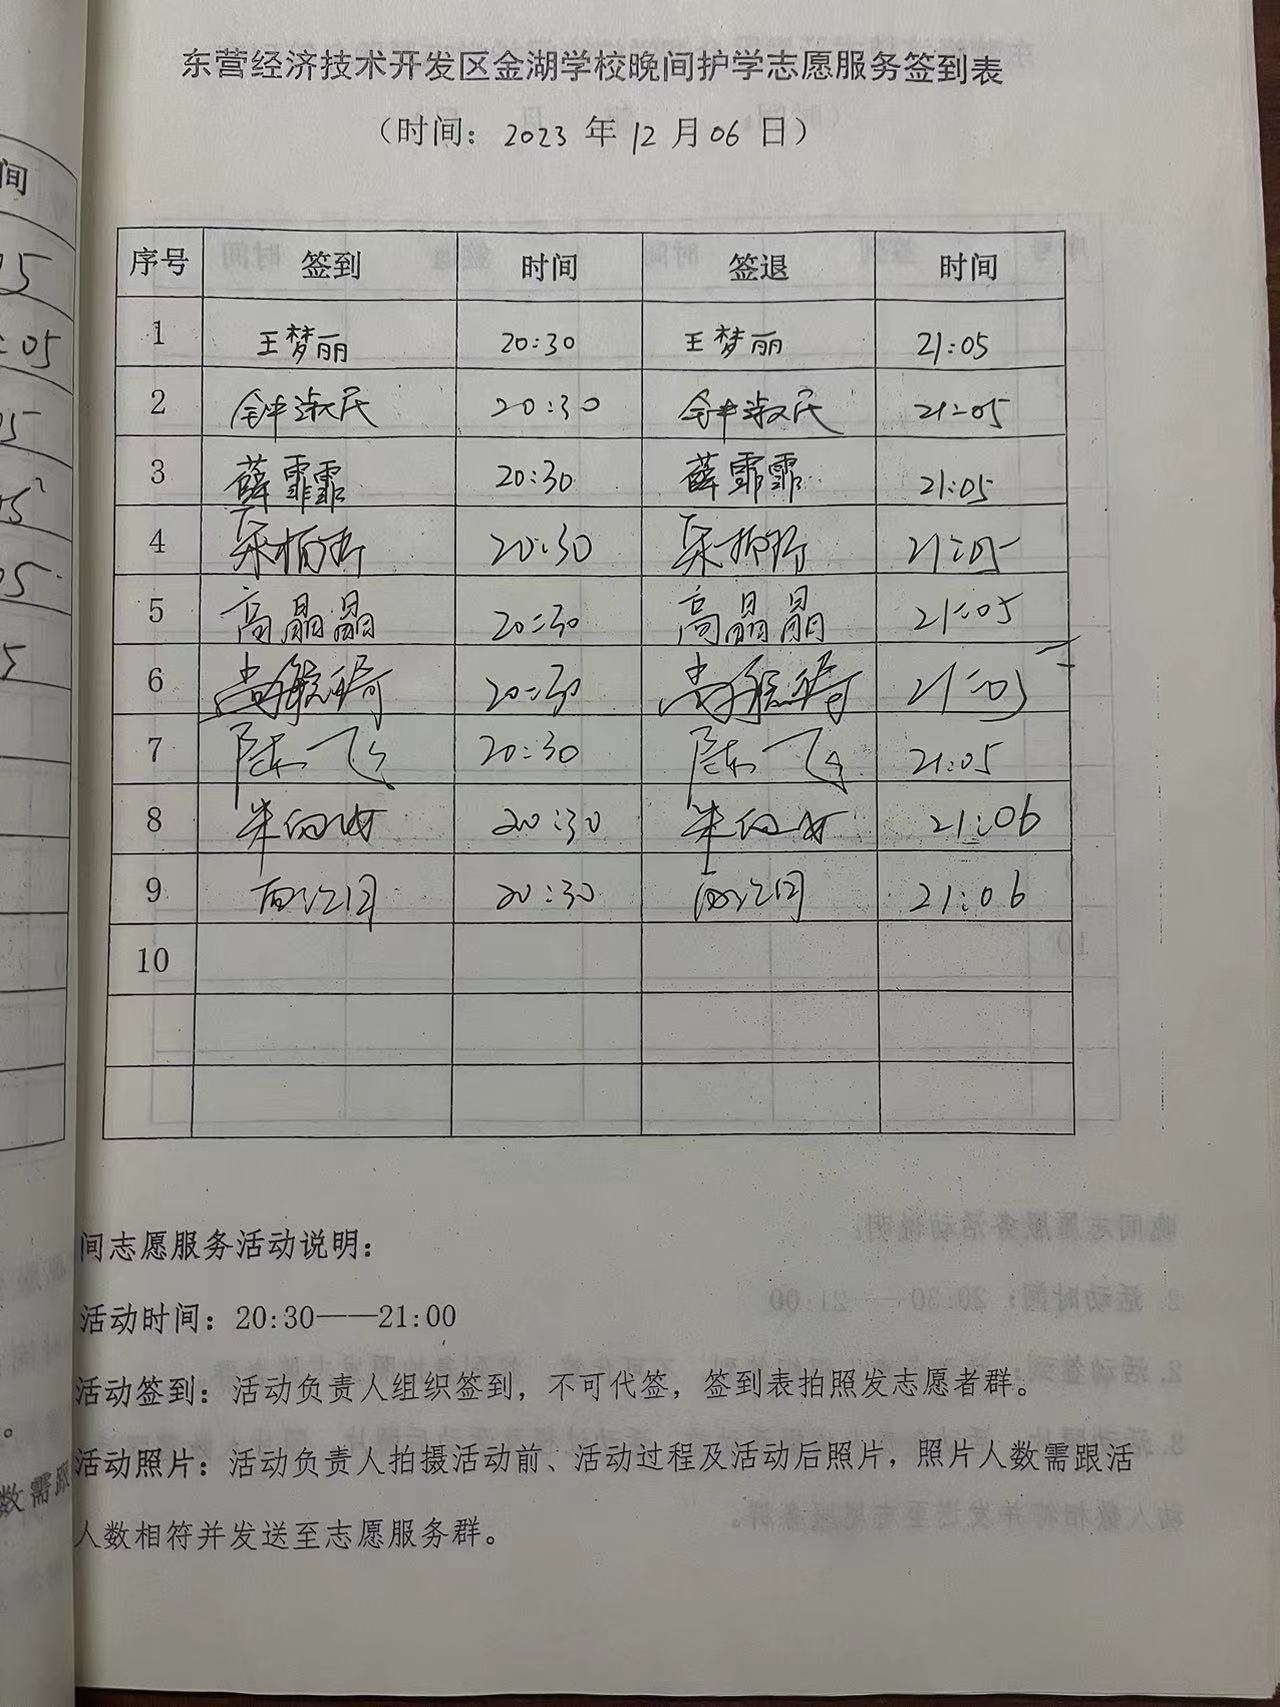 东营经济技术开发区金湖学校晚间护学志愿服务签到表
（时间：2023 年 12 月 06 日）
序号 签到 时间 签退 时间
1 王梦丽 20:30 王梦丽 21:05
2 钟淑民 20:30 钟淑民 21:05
3 薛霏霏 20:30 薛霏霏 21:05
4 20:30 21:05
5 高晶晶 20:30 高晶晶 21:05
6 20:30 21:05
7 陈飞 20:30 陈飞 21:05
8 20:30 21:06
9 20:30 21:06
10
间志愿服务活动说明：
活动时间：20:30——21:00
活动签到：活动负责人组织签到，不可代签，签到表拍照发志愿者群。
活动照片：活动负责人拍摄活动前、活动过程及活动后照片，照片人数需跟活
人数相符并发送至志愿服务群。